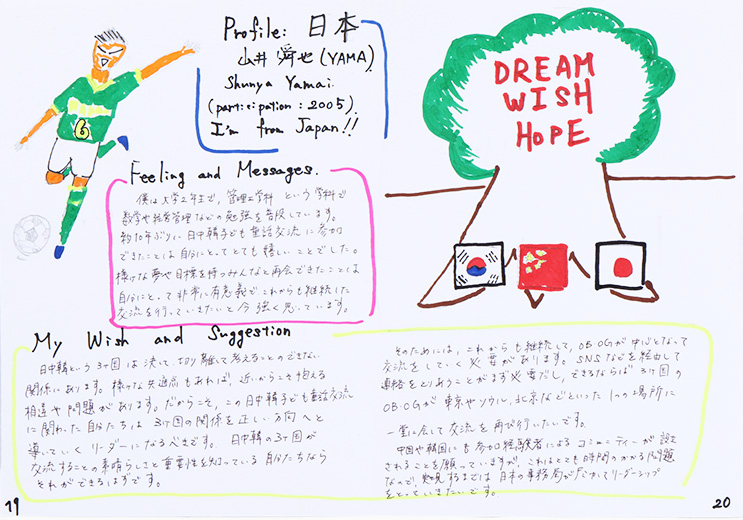 Profile: 日本
山井 舜也 (YAMA)
Shunya Yamai
(participation : 2005)
I'm from Japan!!
6
DREAM
WISH
HOPE
Feeling and Messages.
僕は大学2年生で、管理工学科 という 学科で
数学や経営管理などの勉強を普段しています。
約10年ぶりに日中韓子ども童話交流 に 参加
できたことは 自分にとってとても嬉しいことでした。
様々な夢や目標を持つみんなと再会できたことは
自分にとって非常に有意義でこれからも継続した
交流を行っていきたいと今 強く思っています。
My Wish and Suggestion
日中韓という 3ヶ国は 決して切り離して考えることのできない
関係にあります。様々な共通点もあれば、近いからこそ抱える
相違や問題があります。だからこそ、この日中韓子ども童話交流
に関わった自分たちは 3ヶ国の関係を正しい方向へと
導いていくリーダーになるべきです。 日中韓の3ヶ国が
交流することの素晴らしさと重要性を知っている自分たちなら
それができるはずです。
そのためには、これからも継続して、OB・OGが中心となって
交流をしていく必要があります。SNSなどを経由して
連絡をとりあうことがまず必要だし、できるならば 3ヶ国の
OB・OGが 東京やソウル、北京などといった 1つの場所に
一堂に会して交流を再び行いたいです。
中国や韓国にも参加経験者によるコミュニティーが 設立
されることを願っていますが、これはとても時間のかかる問題
なので、実現するまでは 日本の事務局が リーダーシップ
をとっていきたいです。
19
20